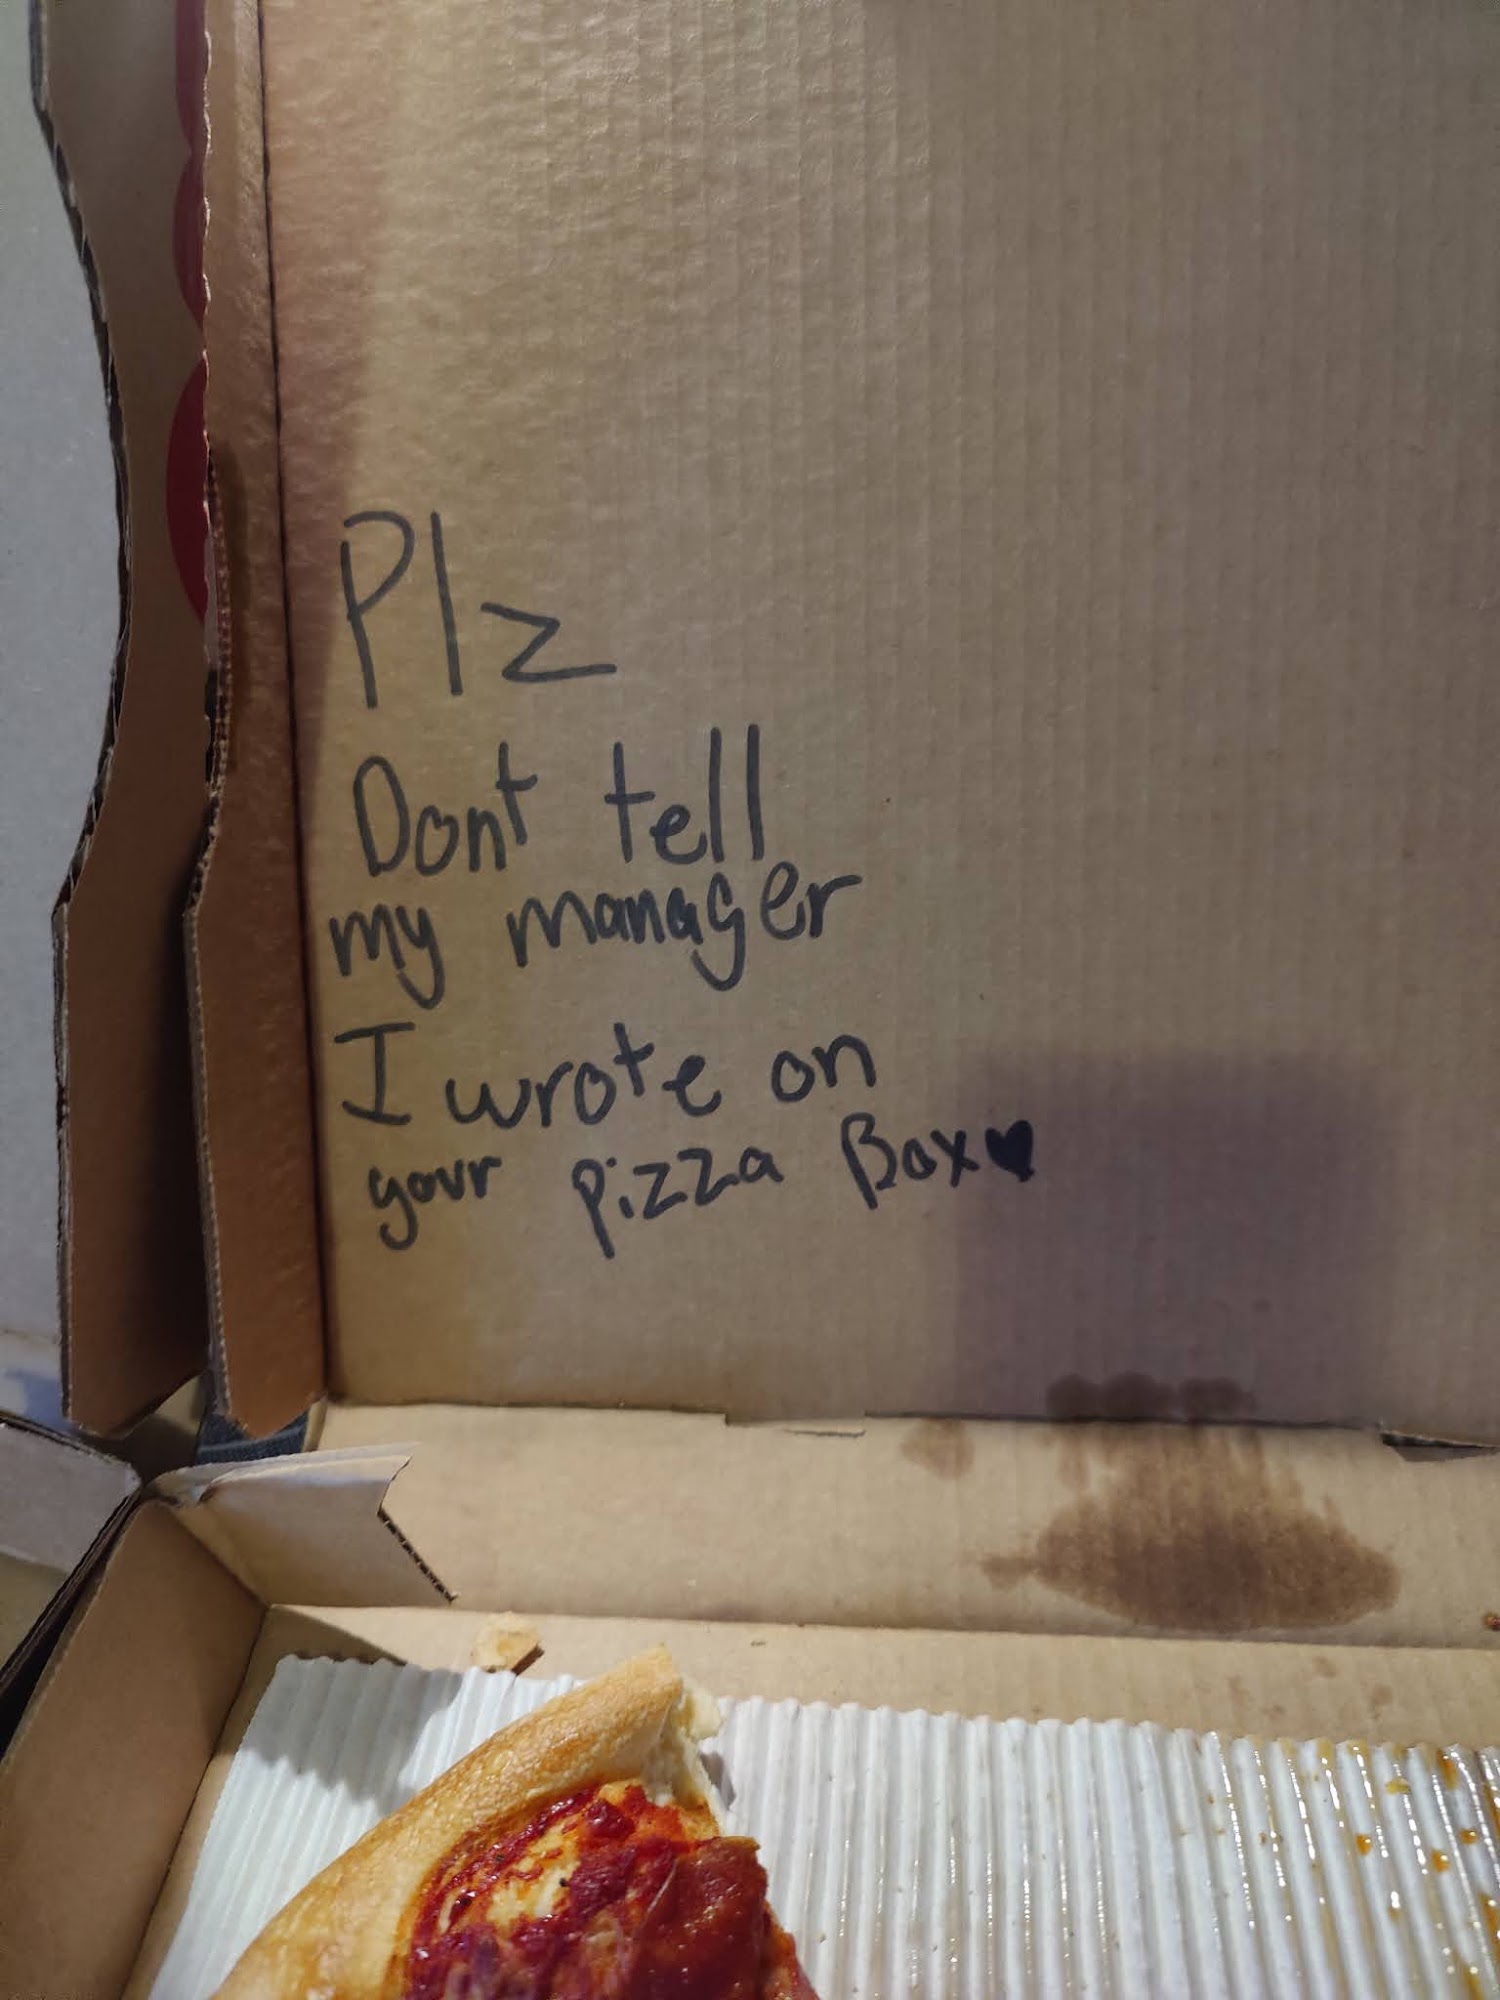 Plz
Dont tell
my manager
I wrote on
your pizza Box♥